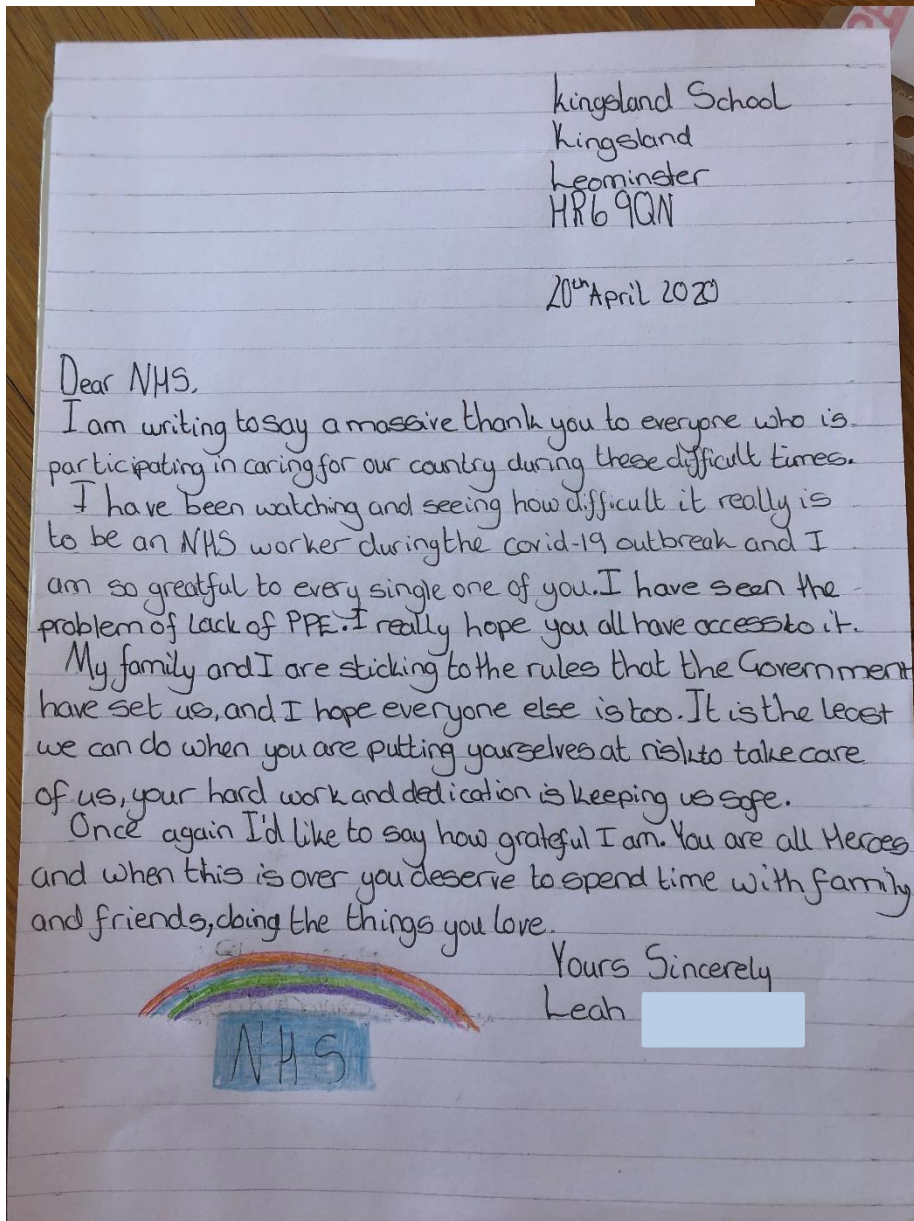 Kingsland School
Kingsland
Leominster
HR6 9QN
20th April 2020
Dear NHS,
I am writing to say a massive thank you to everyone who is
participating in caring for our country during these difficult times.
I have been watching and seeing how difficult it really is
to be an NHS worker during the covid-19 outbreak and I
am so greatful to every single one of you. I have seen the
problem of lack of PPE. I really hope you all have access to it.
My family and I are sticking to the rules that the Government
have set us, and I hope everyone else is too. It is the least
we can do when you are putting yourselves at risk to take care
of us, your hard work and dedication is keeping us safe.
Once again I'd like to say how grateful I am. You are all Heroes
and when this is over you deserve to spend time with family
and friends, doing the things you love.
Yours Sincerely
Leah
NHS